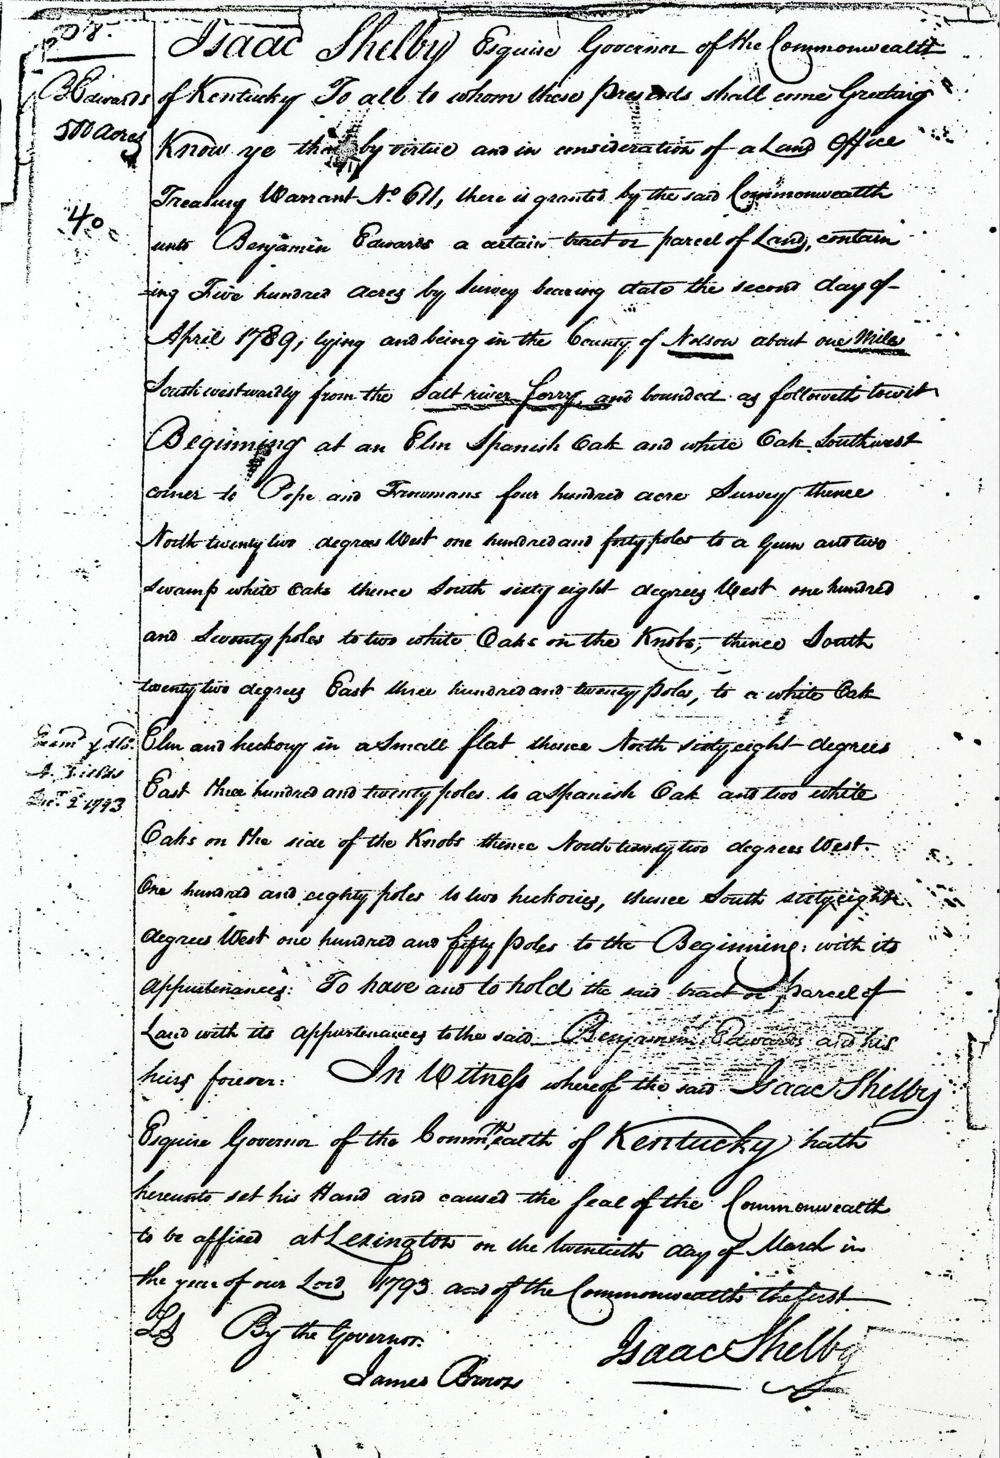 208.
B Edwards
500 Acres
40
Isaac Shelby Esquire Governor of the Commonwealth
of Kentucky To all to whom these Presents shall come Greeting
Know ye that by virtue and in consideration of a Land Office
Treasury Warrant No. 611, there is granted by the said Commonwealth
unto Benjamin Edwards a certain tract or parcel of Land, contain
-ing Five hundred acres by Survey bearing date the second day of
April 1789, lying and being in the County of Nelson about one Mile
Southwestwardly from the Salt river ferry and bounded as followeth towit
Beginning at an Elm Spanish Oak and white Oak Southwest
corner to Pope and Trowmans four hundred acre Survey thence
North twenty two degrees West one hundred and forty poles to a Gum and two
swamp white Oaks thence South sixty eight degrees West one hundred
and Seventy poles to two white Oaks on the Knobs, thence South
twenty two degrees East three hundred and twenty poles, to a white Oak
Elm and heckory in a Small flat thence North sixty eight degrees
East three hundred and twenty poles to a Spanish Oak and two white
Oaks on the side of the Knobs thence North twenty two degrees West
One hundred and eighty poles to two heckories, thence South sixty eight
degrees West one hundred and fifty poles to the Beginning: with its
appurtenances: To have and to hold the said tract or parcel of
Land with its appurtenances to the said Benjamin Edwards and his
heirs forever: In Witness whereof the said Isaac Shelby
Esquire Governor of the Commonwealth of Kentucky hath
hereunto set his Hand and caused the Seal of the Commonwealth
to be affixed at Lexington on the twentieth day of March in
the year of our Lord 1793 and of the Commonwealth the first
LS By the Governor. Isaac Shelby
James Brown
Exam'd
A. Fields
1793